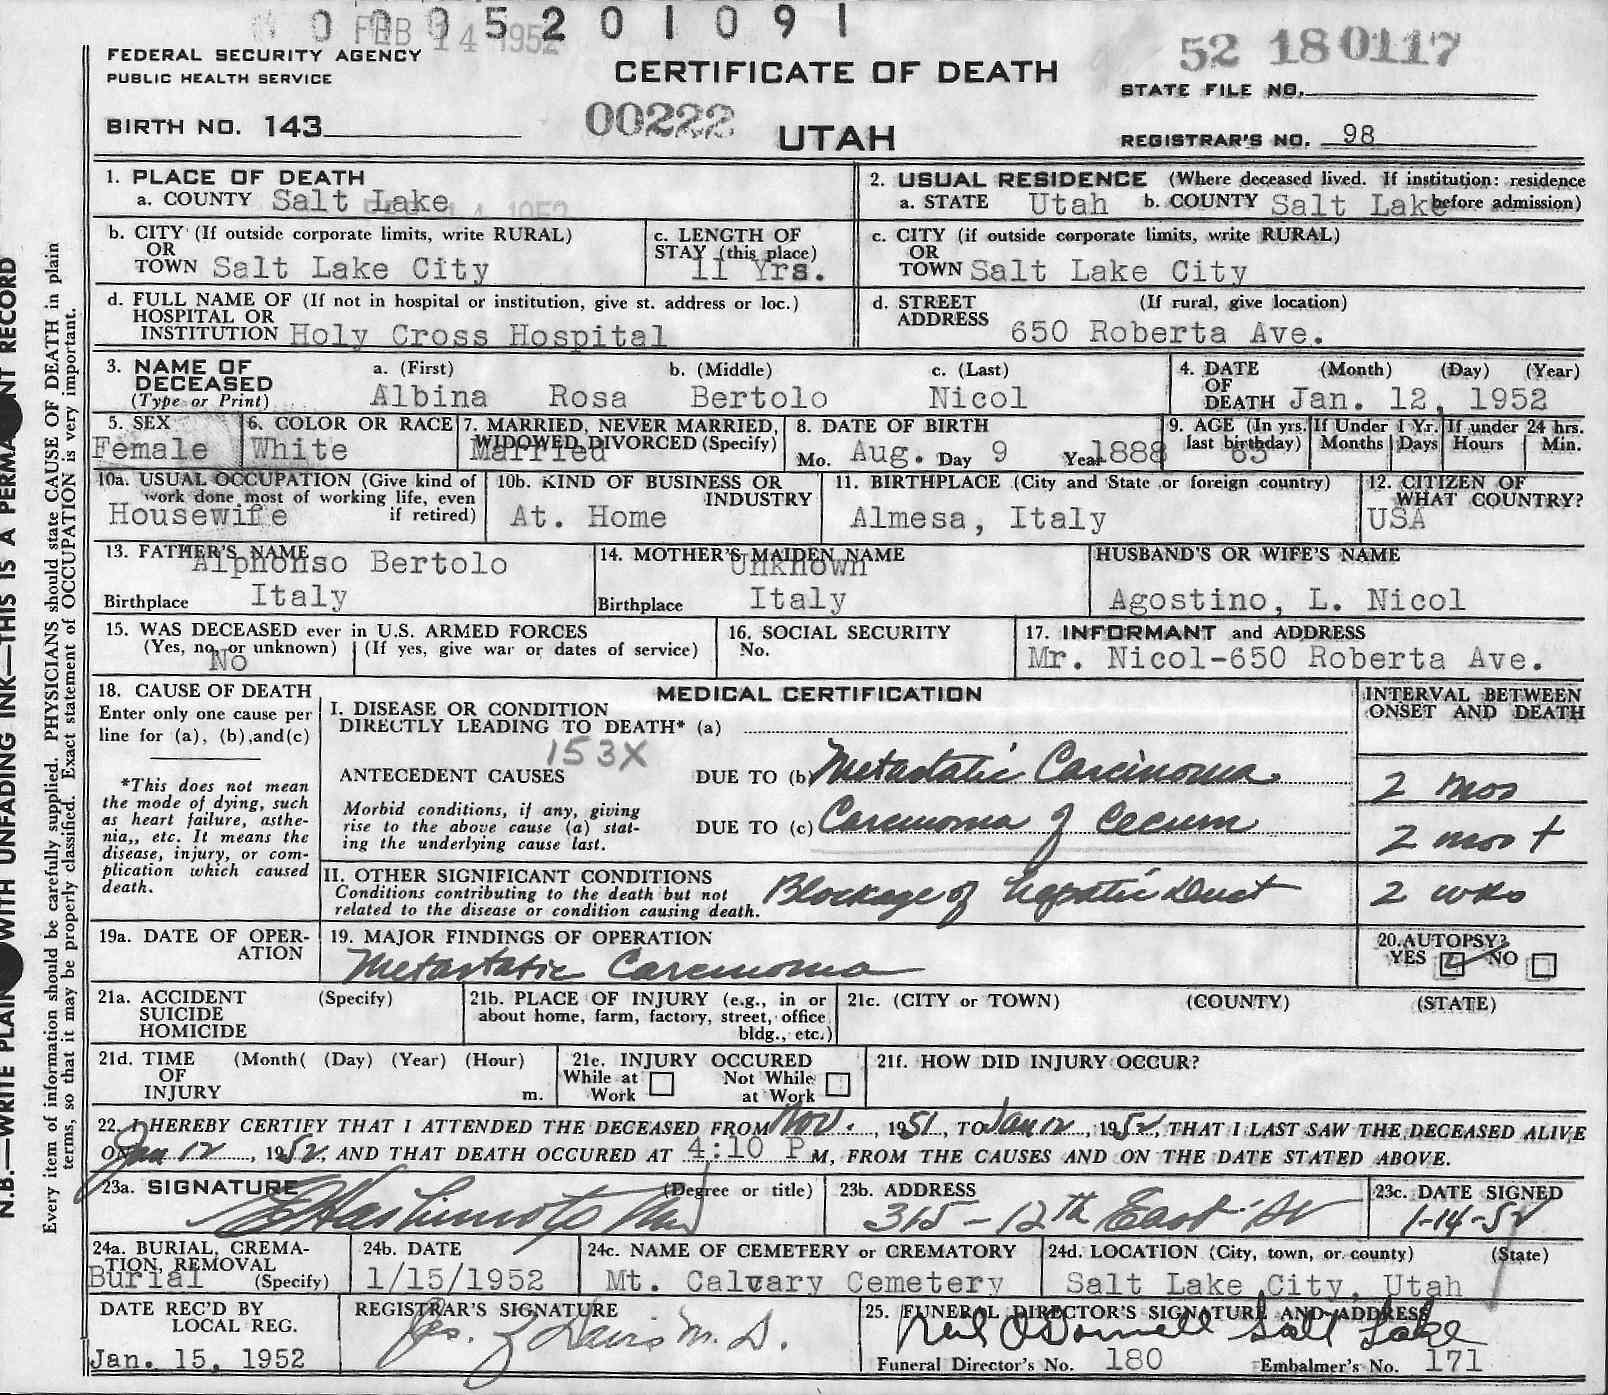 0 0 0 5 2 0 1 0 9 1
FEB 14 1952
FEDERAL SECURITY AGENCY
PUBLIC HEALTH SERVICE
CERTIFICATE OF DEATH
52 18 0117
STATE FILE NO.
BIRTH NO. 143
00222
UTAH
REGISTRAR'S NO. 98
1. PLACE OF DEATH
a. COUNTY Salt Lake
2. USUAL RESIDENCE (Where deceased lived. If institution: residence before admission)
a. STATE Utah b. COUNTY Salt Lake
b. CITY (If outside corporate limits, write RURAL)
OR
TOWN Salt Lake City
c. LENGTH OF
STAY (this place)
11 Yrs.
c. CITY (if outside corporate limits, write RURAL)
OR
TOWN Salt Lake City
d. FULL NAME OF (If not in hospital or institution, give st. address or loc.)
HOSPITAL OR
INSTITUTION Holy Cross Hospital
d. STREET (If rural, give location)
ADDRESS
650 Roberta Ave.
3. NAME OF
DECEASED
(Type or Print)
a. (First) b. (Middle) c. (Last)
Albina Rosa Bertolo Nicol
4. DATE (Month) (Day) (Year)
OF
DEATH Jan. 12, 1952
5. SEX
Female
6. COLOR OR RACE
White
7. MARRIED, NEVER MARRIED,
WIDOWED, DIVORCED (Specify)
Married
8. DATE OF BIRTH
Mo. Aug. Day 9 Year 1888
9. AGE (In yrs. last birthday)
63
If Under 1 Yr.
Months Days
If under 24 hrs.
Hours Min.
10a. USUAL OCCUPATION (Give kind of
work done most of working life, even
if retired)
Housewife
10b. KIND OF BUSINESS OR
INDUSTRY
At. Home
11. BIRTHPLACE (City and State or foreign country)
Almesa, Italy
12. CITIZEN OF
WHAT COUNTRY?
USA
13. FATHER'S NAME
Alphonso Bertolo
Birthplace Italy
14. MOTHER'S MAIDEN NAME
Unknown
Birthplace Italy
HUSBAND'S OR WIFE'S NAME
Agostino, L. Nicol
15. WAS DECEASED ever in U.S. ARMED FORCES
(Yes, no, or unknown) (If yes, give war or dates of service)
No
16. SOCIAL SECURITY
No.
17. INFORMANT and ADDRESS
Mr. Nicol-650 Roberta Ave.
18. CAUSE OF DEATH
Enter only one cause per
line for (a), (b), and (c)
*This does not mean
the mode of dying, such
as heart failure, asthe-
nia,, etc. It means the
disease, injury, or com-
plication which caused
death.
MEDICAL CERTIFICATION
I. DISEASE OR CONDITION
DIRECTLY LEADING TO DEATH* (a)
153X
ANTECEDENT CAUSES
DUE TO (b) Metastatic Carcinoma
Morbid conditions, if any, giving
rise to the above cause (a) stat-
ing the underlying cause last.
DUE TO (c) Carcinoma of Cecum
INTERVAL BETWEEN
ONSET AND DEATH
2 mos
2 mos +
II. OTHER SIGNIFICANT CONDITIONS
Conditions contributing to the death but not
related to the disease or condition causing death.
Blockage of Hepatic Duct
2 wks
19a. DATE OF OPER-
ATION
19. MAJOR FINDINGS OF OPERATION
Metastatic Carcinoma
20. AUTOPSY?
YES NO
21a. ACCIDENT (Specify)
SUICIDE
HOMICIDE
21b. PLACE OF INJURY (e.g., in or
about home, farm, factory, street, office
bldg., etc.)
21c. (CITY or TOWN) (COUNTY) (STATE)
21d. TIME (Month( (Day) (Year) (Hour)
OF
INJURY m.
21e. INJURY OCCURED
While at Work Not While at Work
21f. HOW DID INJURY OCCUR?
22. I HEREBY CERTIFY THAT I ATTENDED THE DECEASED FROM Nov., 1951, TO Jan 12, 1952, THAT I LAST SAW THE DECEASED ALIVE
ON Jan 12, 1952, AND THAT DEATH OCCURED AT 4:10 P M, FROM THE CAUSES AND ON THE DATE STATED ABOVE.
23a. SIGNATURE (Degree or title)
E Hashimoto MD
23b. ADDRESS
315 - 12th East St
23c. DATE SIGNED
1-14-52
24a. BURIAL, CREMA-
TION, REMOVAL
(Specify)
Burial
24b. DATE
1/15/1952
24c. NAME OF CEMETERY or CREMATORY
Mt. Calvary Cemetery
24d. LOCATION (City, town, or county) (State)
Salt Lake City, Utah
DATE REC'D BY
LOCAL REG.
Jan. 15, 1952
REGISTRAR'S SIGNATURE
Davis M. D.
25. FUNERAL DIRECTOR'S SIGNATURE AND ADDRESS
Neil O'Donnell Salt Lake
Funeral Director's No. 180 Embalmer's No. 171
Every item of information should be carefully supplied. PHYSICIANS should state CAUSE OF DEATH in plain
terms, so that it may be properly classified. Exact statement of OCCUPATION is very important.